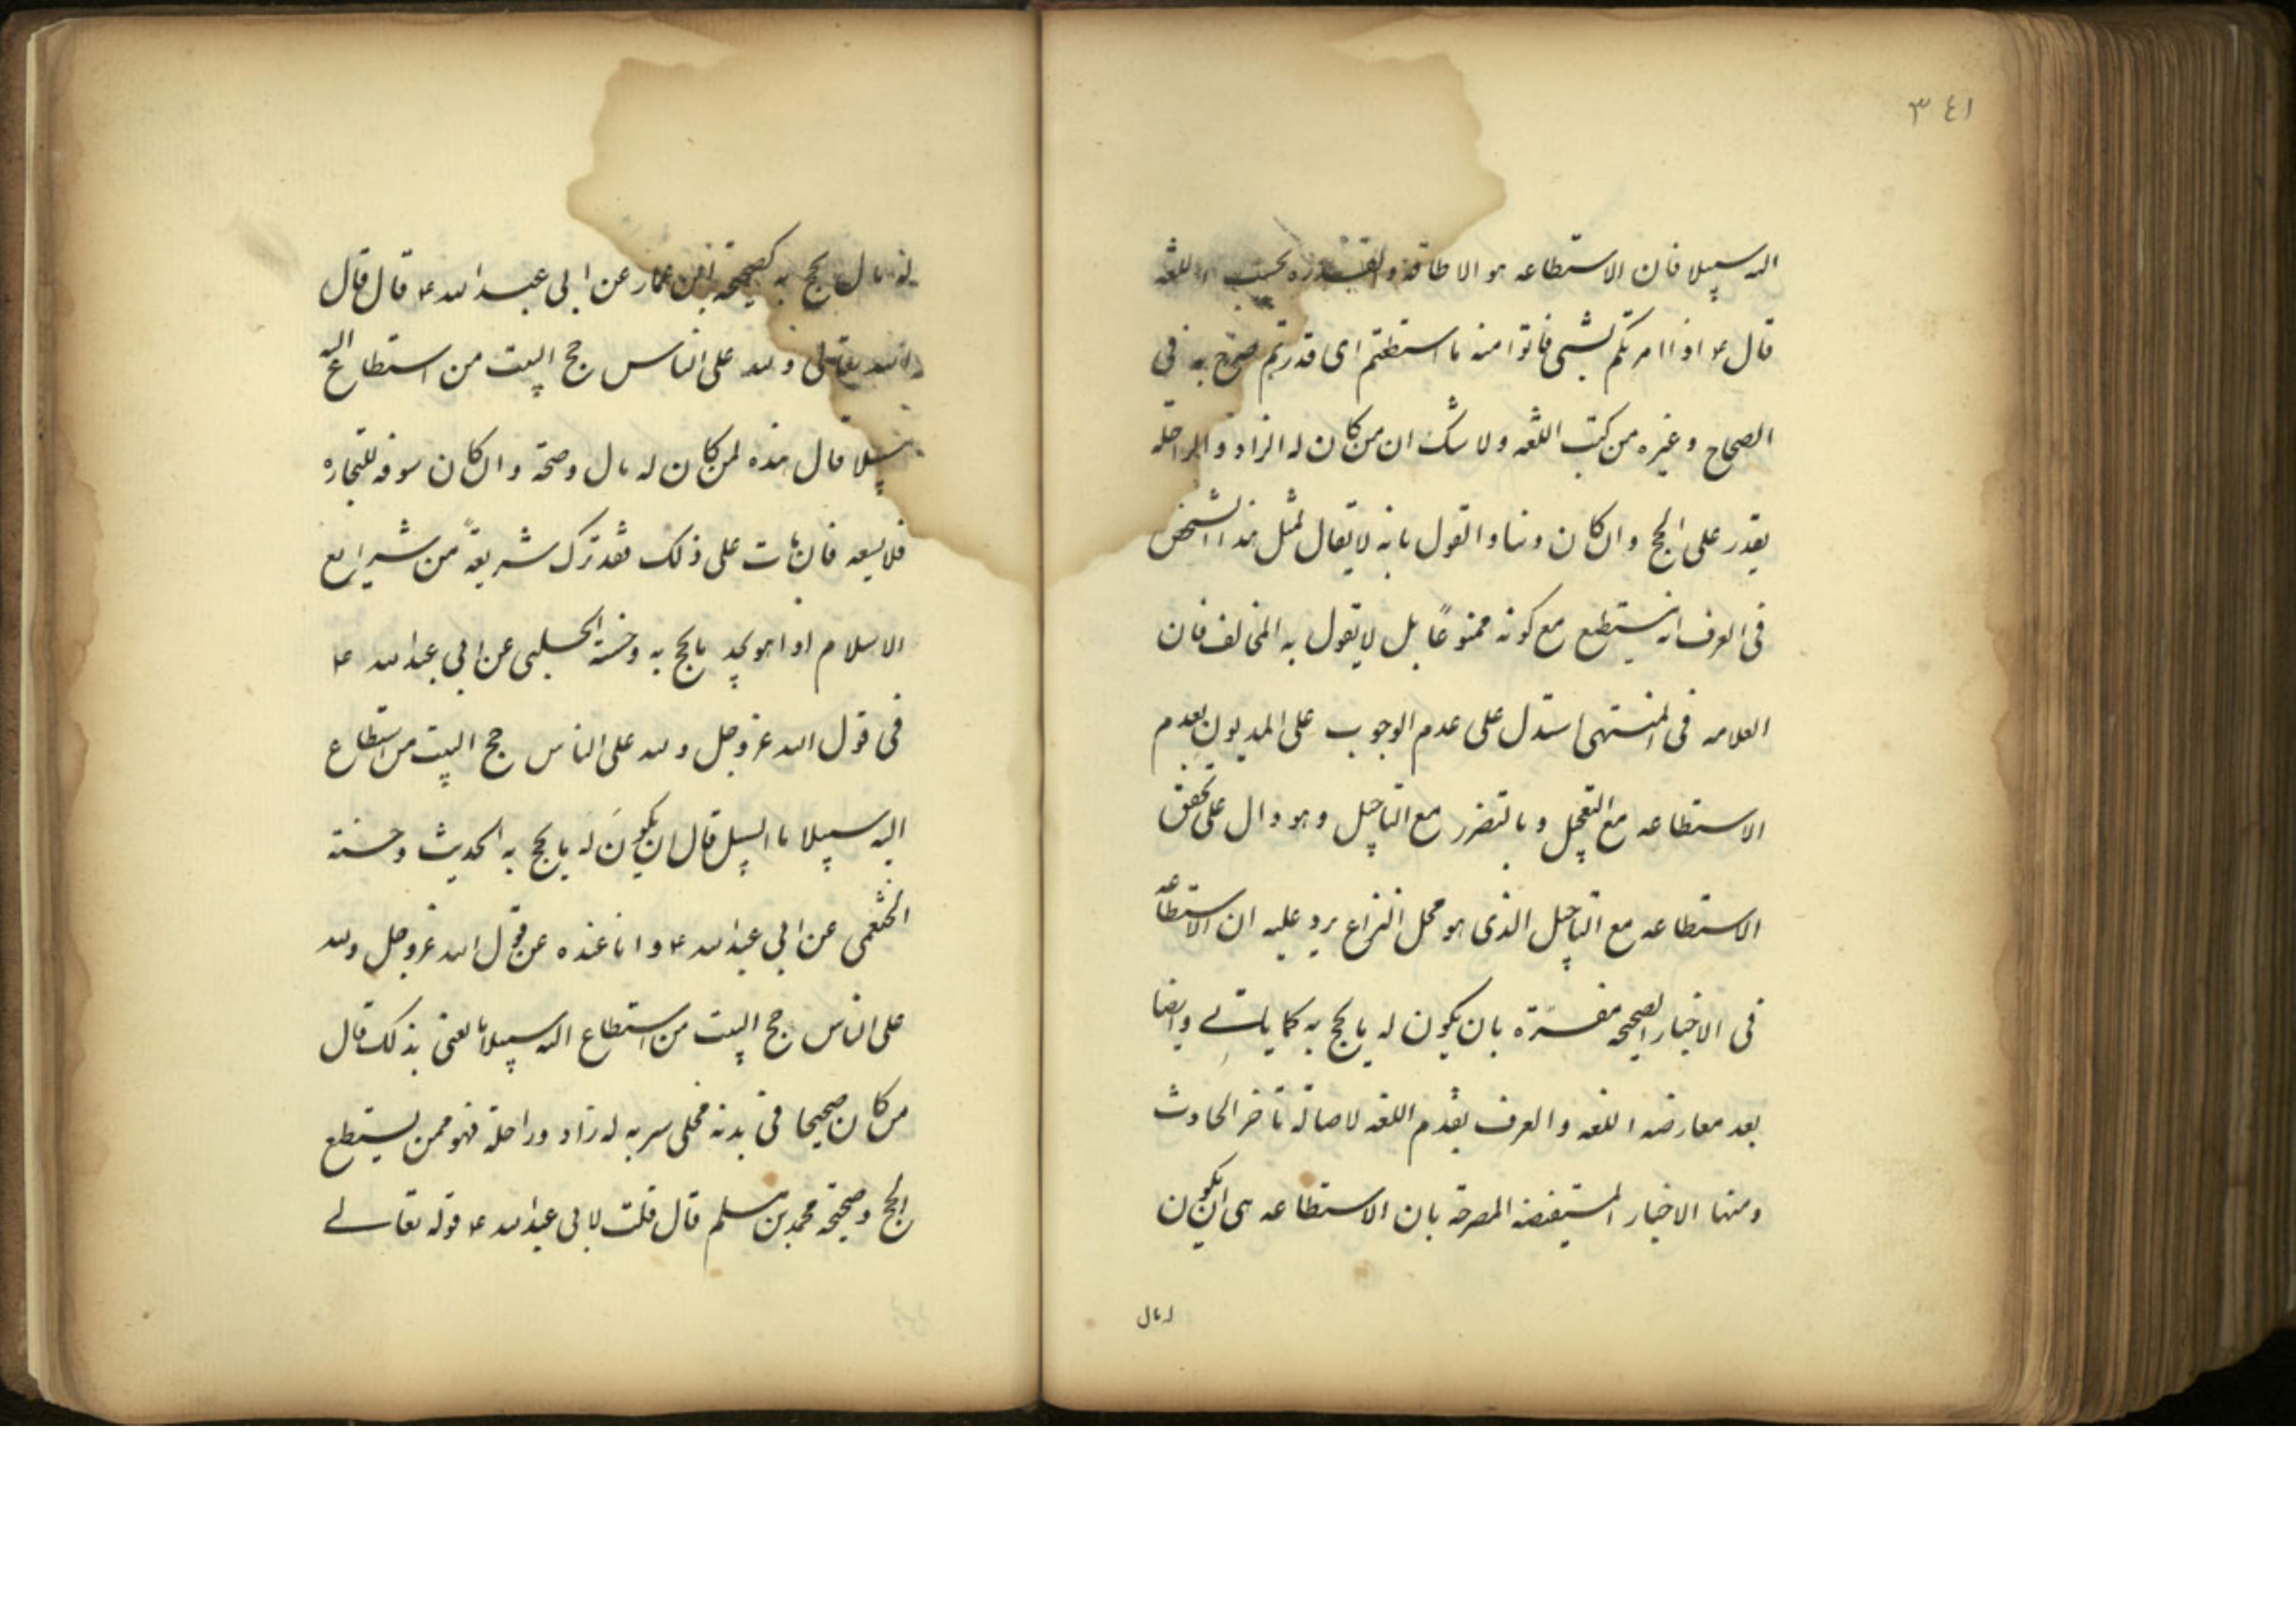 ٣٤١
اليه سبيلا فان الاستطاعه هو الاطاقة والقدره بحسب اللغه
قال ع اذا امرتكم بشئ فاتوا منه ما استطعتم اى قدرتم صرح به فى
الصحاح و غيره من كتب اللغه ولا شك ان من كان له الزاد و الراحله
يقدر على الحج و ان كان مديونا و القول بانه لا يقال لمثل هذا الشخص
فى العرف انه يستطيع مع كونه ممنوعًا بل لا يقول به المخالف فان
العلامه فى المنتهى استدل على عدم الوجوب على المديون بعدم
الاستطاعه مع التعجيل و بالتضرر مع التاجيل و هو دال على تحقق
الاستطاعه مع التاجيل الذى هو محل النزاع يرد عليه ان الاستطاعه
فى الاخبار الصحيحه مفسّرة بان يكون له ما يحج به كما ياتے و ايضا
بعد معارضه اللغه و العرف يقدم اللغه لاصالة تاخر الحادث
ومنها الاخبار المستفيضه المصرحة بان الاستطاعه هى ان يكون
له مال
له مال يحج به كصحيحة ابن عمار عن ابى عبد الله ع قال قال
الله تعالى و لله على الناس حج البيت من استطاع اليه
سبيلا قال هذه لمن كان له مال و صحة و ان كان سوفه للتجاره
فلا يسعه فان مات على ذلك فقد ترك شريعةً من شرايع
الاسلام اذا هو يجد ما يحج به و حسنة الحلبى عن ابى عبد الله ع
فى قول الله عز و جل و لله على الناس حج البيت من استطاع
اليه سبيلا ما السبيل قال ان يكونَ له ما يحج به الحديث و حسنة
الخثعمى عن ابى عبد الله ع و انا عنده عن قول الله عز و جل و لله
على الناس حج البيت من استطاع اليه سبيلا ما يعنى بذلك قال
من كان صحيحا فى بدنه مخلى سربه له زاد و راحلة فهو ممن يستطيع
الحج و صحيحة محمد بن مسلم قال قلت لابى عبد الله ع قوله تعالے